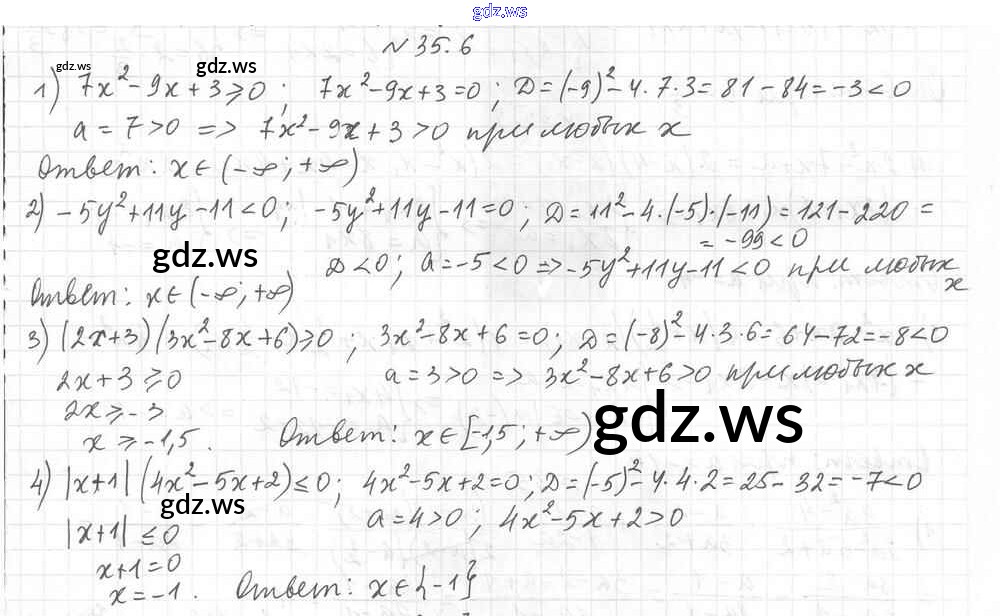 gdz.ws
№ 35.6
gdz.ws gdz.ws
1) 7x² - 9x + 3 ≥ 0 ; 7x² - 9x + 3 = 0 ; D = (-9)² - 4 · 7 · 3 = 81 - 84 = -3 < 0
a = 7 > 0 => 7x² - 9x + 3 > 0 при любых x
Ответ: x ∈ (-∞; +∞)
2) -5y² + 11y - 11 < 0 ; -5y² + 11y - 11 = 0 ; D = 11² - 4 · (-5) · (-11) = 121 - 220 =
= -99 < 0
gdz.ws
D < 0 ; a = -5 < 0 => -5y² + 11y - 11 < 0 при любых
x
Ответ: x ∈ (-∞; +∞)
3) (2x+3)(3x² - 8x + 6) ≥ 0 ; 3x² - 8x + 6 = 0 ; D = (-8)² - 4 · 3 · 6 = 64 - 72 = -8 < 0
2x + 3 ≥ 0 a = 3 > 0 => 3x² - 8x + 6 > 0 при любых x
2x ≥ -3
gdz.ws
x ≥ -1,5 . Ответ: x ∈ [-1,5 ; +∞)
4) |x+1| (4x² - 5x + 2) ≤ 0 ; 4x² - 5x + 2 = 0 ; D = (-5)² - 4 · 4 · 2 = 25 - 32 = -7 < 0
gdz.ws
|x+1| ≤ 0 a = 4 > 0 ; 4x² - 5x + 2 > 0
x + 1 = 0
x = -1 . Ответ: x ∈ {-1}